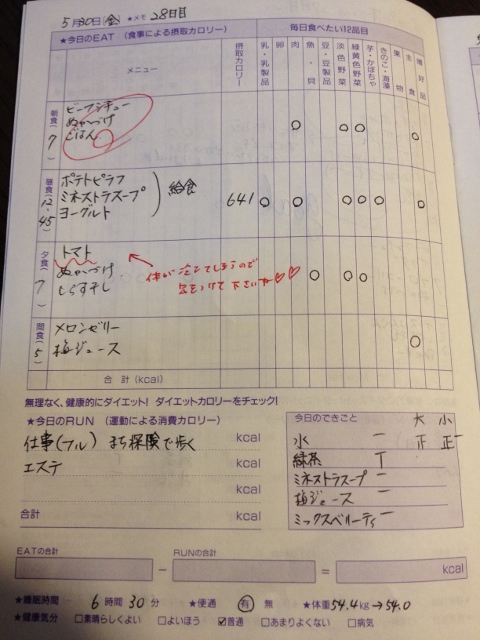 5月30日(金) ★メモ 28日目
★今日のEAT (食事による摂取カロリー)
毎日食べたい12品目
メニュー
摂取カロリー
乳・乳製品
卵
肉
魚・貝
豆・豆製品
淡色野菜
緑黄色野菜
芋・かぼちゃ
きのこ・海藻
果物
主食
嗜好品
朝食(7)
ビーフシチュー
ぬかづけ
ごはん
昼食(12:45)
ポテトピラフ
ミネストラスープ
ヨーグルト
給食
641
夕食(7)
トマト
ぬかづけ
しらす干し
体が冷えてしまうので
気をつけて下さいね♡♡
間食(5)
メロンゼリー
梅ジュース
合計(kcal)
無理なく、健康的にダイエット! ダイエットカロリーをチェック!
★今日のRUN (運動による消費カロリー)
仕事(フル) まち探険で歩く kcal
エステ kcal
kcal
合計 kcal
今日のできごと 大 小
水 一 正 正一
緑茶 T
ミネストラスープ 一
梅ジュース 一
ミックスベリーティ 一
EATの合計
−
RUNの合計
=
kcal
★睡眠時間 6時間30分 ★便通 有 無 ★体重54.4kg→54.0
★健康気分 □素晴らしくよい □よいほう ☑普通 □あまりよくない □病気